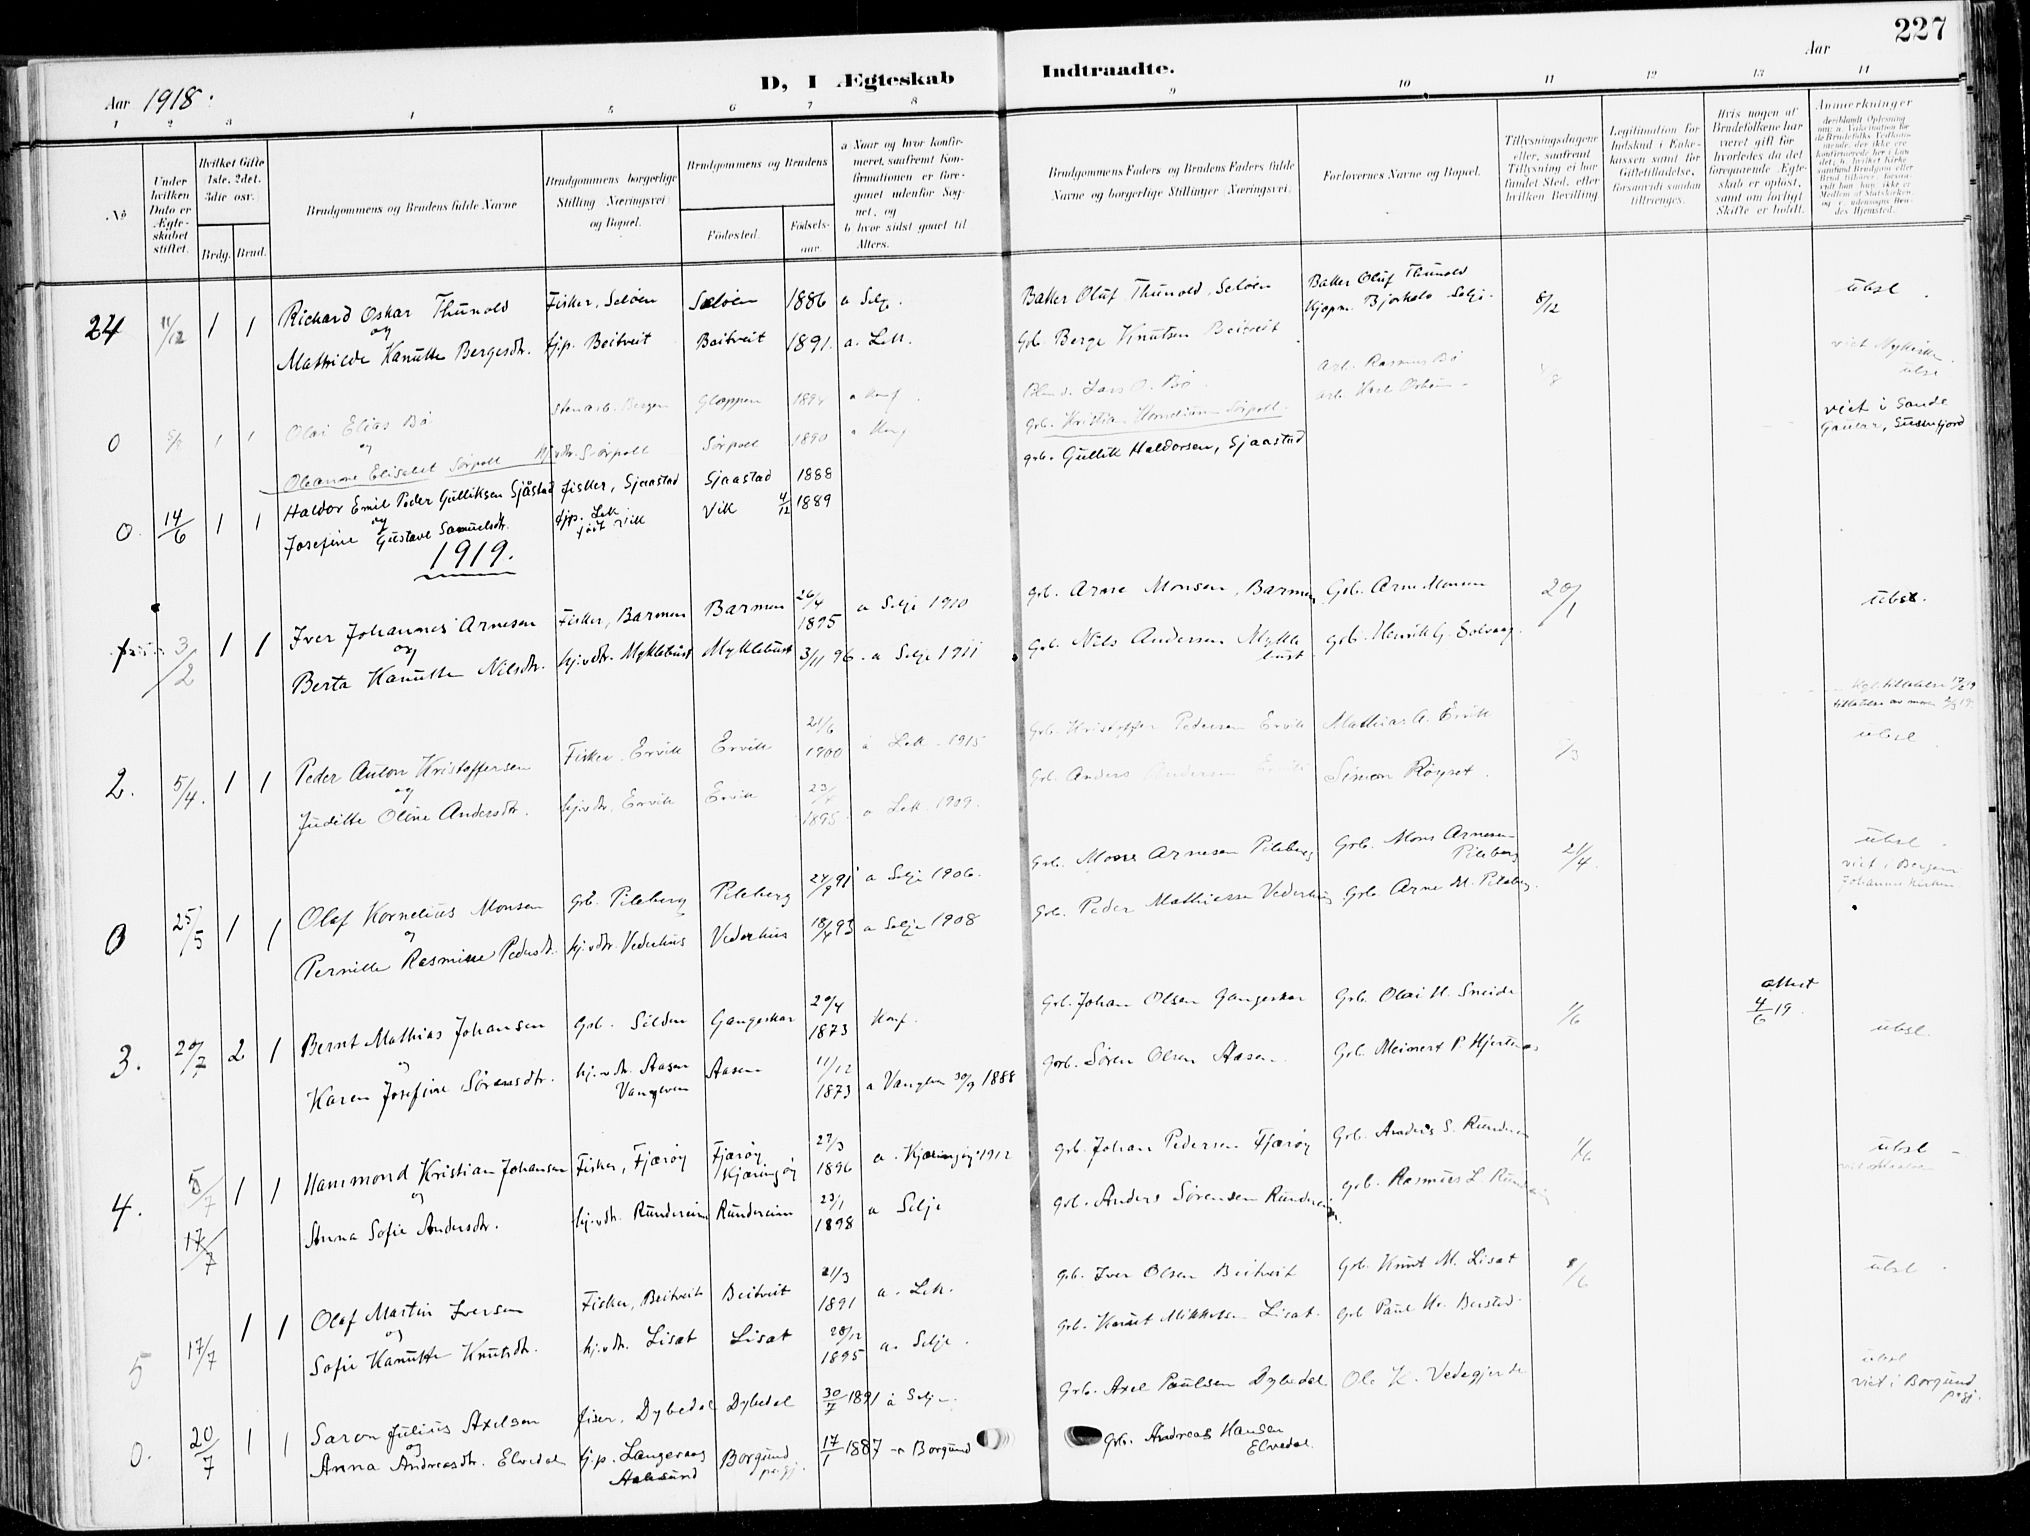 227
Aar 1918.
D, I Ægteskab Indtraadte.
Aar
1 2 3 4 5 6 7 8 9 10 11 12 13 14
No
Under hvilken Dato er Ægteskabet stiftet.
Hvilket Gifte 1ste, 2det, 3die osv.
Brdg. Brud.
Brudgommens og Brudens fulde Navne
Brudgommens borgerlige Stilling Næringsvei og Bopæl.
Brudgommens og Brudens
Födested.
Födselsaar.
a Naar og hvor konfirmeret, saafremt Konfirmationen er foregaaet udenfor Sognet, og
b hvor sidst gaaet til Alters.
Brudgommens Faders og Brudens Faders fulde Navne og borgerlige Stillinger (Næringsvei.
Forlovernes Navne og Bopæl.
Tillysningsdagene eller, saafremt Tillysning ei har fundet Sted, efter hvilken Bevilling
Legitimation for Indskud i Enkekassen samt for Giftetilladelse, forsaavidt saadan tiltrænges.
Hvis nogen af Brudefolkene har været gift før hvorledes da det foregaaende Ægteskab er oplöst, samt om lovligt Skifte er holdt.
Anmerkninger
24 11/12 1 1 Richard Oskar Thunold Fisker, Seloen Seloen 1886 a Selje. Bakker Oluf Thunold, Seloen Bakker Oluf Thunold 8/12 ubsl.
og Kjøpm. Bjorkelo Selje.
Mathilde Hanutte Bergesdtr. tj.p. Beitveit Beitveit 1891. a. Lek. Gb. Berge Knutsen Beitveit
0 5/8 1 1 Olai Elias Bö Stenarb. Bergen Gloppen 1894 a Konf. Lars O. Bö. Arb. Rasmus Bö
og
Oleanne Elisabet Sörpoll Sörpoll Sörpoll 1890 a Konf grb. Kristian Korneliussen Sörpoll.
0. 14/6 1 1 Haldor Emil Peder Gulliksen Sjåstad fisker, Sjaastad Sjaastad 1888 grb. Gullik Haldorsen, Sjaastad viet i Sande Gaular, Sunnfjord
og
Josefine Gustave Samuelsdtr. tjp. Lek født Vik Vik 4/12 1889
1919.
3/2 1 1 Iver Johannes Arnesen Fisker, Barmen Barmen 26/4 1895 a Selje 1910 grb. Arne Monsen, Barmen Grb. Arne Monsen 20/1 ubsl.
og
Berta Hanutte Nilsdtr. hj.vdr. Myklebust Myklebust 3/11 96. a Selje 1911 Grb. Nils Andersen Myklebust grb. Henrik G. Solvaag.
2. 5/4. 1 1 Peder Anton Kristoffersen Fisker Ervik Ervik 21/6 1900 a Lek. 1915 Grb. Kristoffer Pedersen Ervik Mathias A. Ervik /3 ubsl
og
Juditte Oline Andersdtr. hj.vdr. Ervik Ervik 1895. a Lek. 1909. Grb. Anders Andersen Ervik Simon Röyset.
0 25/5 1 1 Olaf Kornelius Monsen Grb. Pileberg Pileberg 91 a Selje 1906. Grb. Mons Arnesen Pileberg Grb. Mons Arnesen Pileberg 21/4. ubsl. viet i Bergen Johanneskirken
og
Pernille Rasmine Pedersdtr. hj.vdr. Vederhus Vederhus 18/4 93 a Selje 1908 Grb. Peder Mathiassen Vederhus Grb. Arne M. Pileberg.
3. 20/7 2 1 Bernt Mathias Johansen Grb. Silden Gangeskar 20/4 1873 Konf. Grb. Johan Olsen Gangeskar Grb. Olai H. Sneide 1/6 attest 4/6 19. ubsl.
og
Karen Josefine Sörensdtr. hj.vdr. Aasen Vanylven Aasen 11/12 1873 a Vanylven 30/9 1888 Grb. Sören Olsen Aasen Grb. Meinert P. Hjertenes
4. 5/7 17/7 1 1 Hammond Kristian Johansen Fisker, Fjæröy Fjæröy, Kjæringöy 27/3 1896 a. Kjæringöy 1912 Grb. Johan Pedersen Fjæröy Grb. Anders S. Runderein 1/6 ubsl
og
Anna Sofie Andersdtr. hj.vdr. Runderein Runderein 23/1 1898 a Selje grb. Anders Sörensen Runderein. grb. Rasmus L. Runderein
5 17/7 1 1 Olaf Martin Iversen Fisker, Beitveit Beitveit 21/3 1891 a. Lek. grb. Iver Olsen Beitveit Grb. Knut M. Lisæt 8/6 ubsl.
og
Sofie Hanutte Knutsdtr. hj.vdr. Lisæt Lisæt 28/12 1895 a. Selje. Grb. Knut Mikkelsen Lisæt. Grb Paul Kr. Berstad.
0. 20/7 1 1 Saron Julius Axelsen fisker. Dybedal Dybedal 30/7 1891 a Selje. Grb. Axel Paulsen Dybedal Ole K. Vedegjerde ubsl viet i Borgund pgj.
og
Anna Andreasdtr. Elvedal tj.p. Langenæs Aalesund Borgund pgj. 17/1 1887 a Borgund Grb. Andreas Hansen Elvedal.